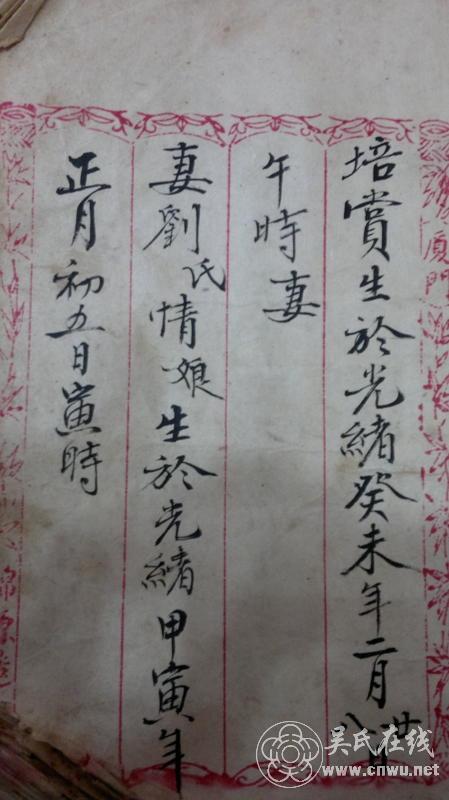 培賞生於光緒癸未年二月廿八日
午時妻
妻劉氏情娘生於光緒甲寅年
正月初五日寅時
廈門
吴氏在线
www.cnwu.net